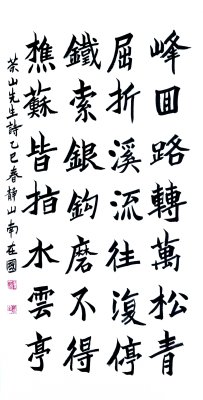 峰回路轉萬松青
屈折溪流往復停
鐵索銀鉤磨不得
樵蘇皆指水雲亭
茶山先生詩乙巳春靜山南在國